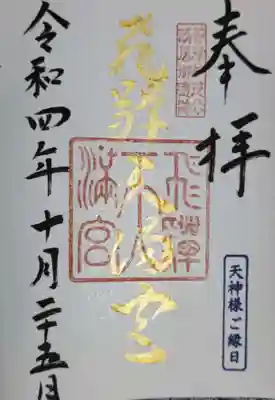 奉拝
天神様ご縁日
飛騨天満宮
飛騨天満宮
令和四年十月二十五日